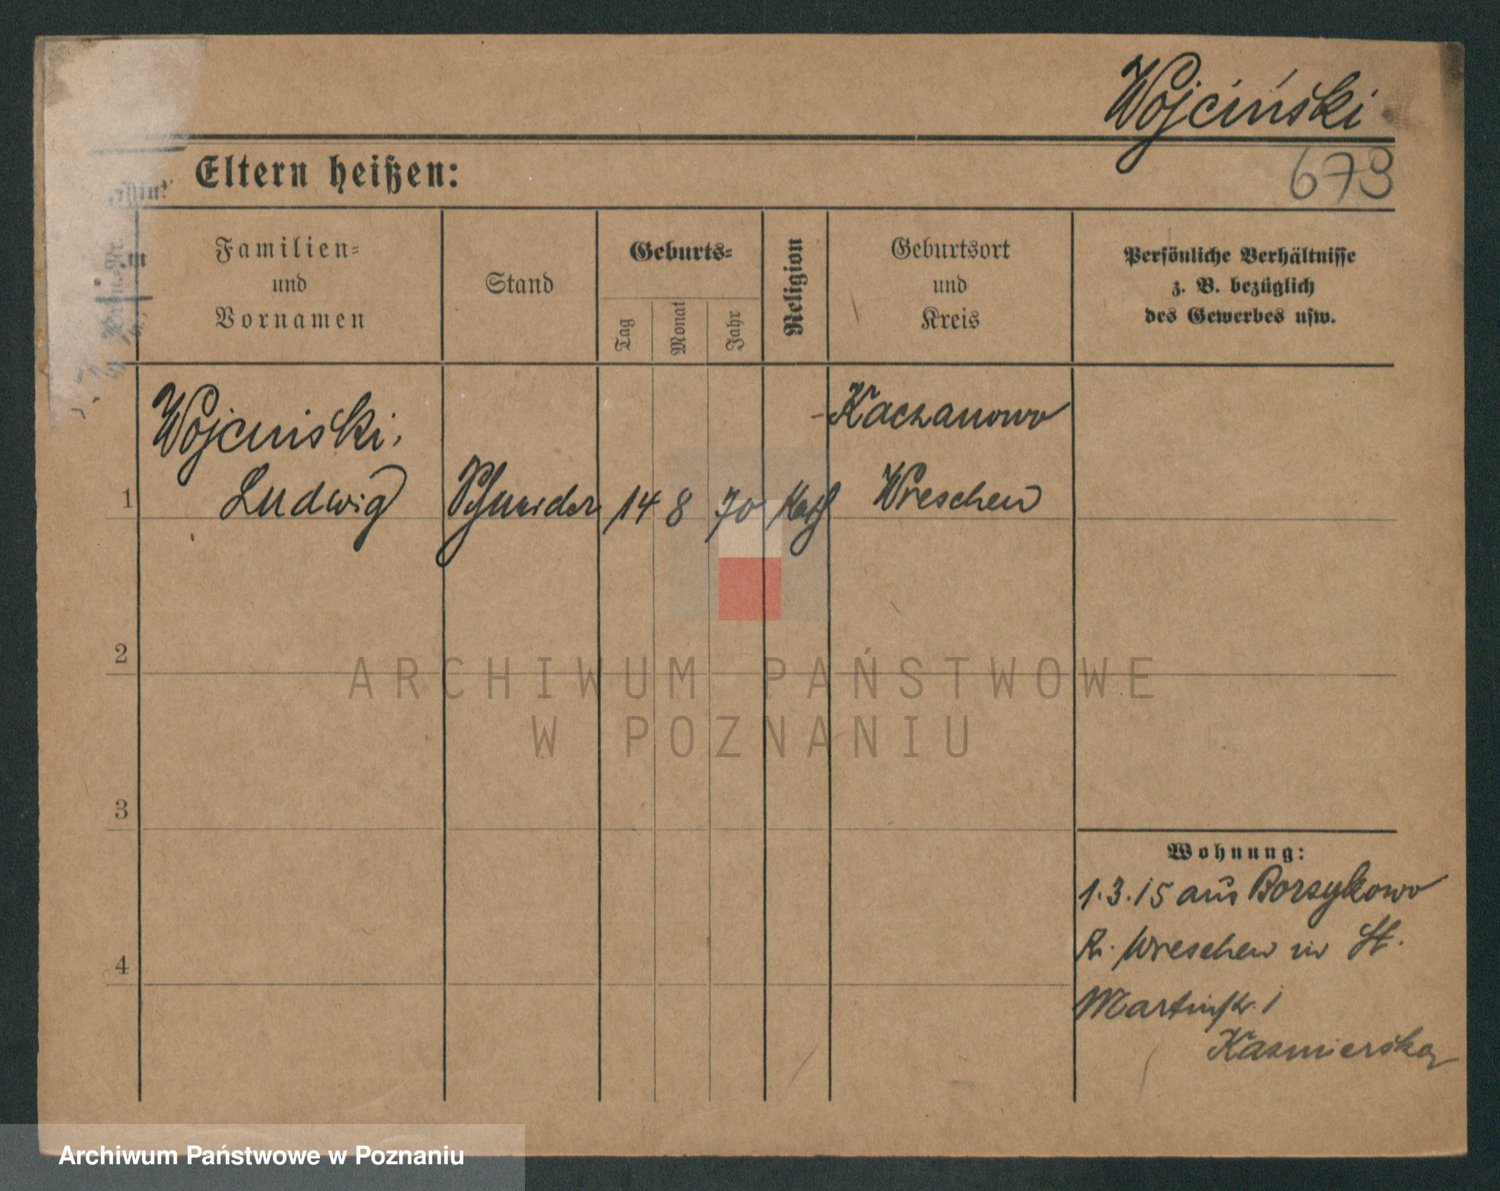 Wojciński
673
Eltern heißen:
Familien-
und
Vornamen
Stand
Geburts-
Tag
Monat
Jahr
Religion
Geburtsort
und
Kreis
Persönliche Verhältnisse
z. B. bezüglich
des Gewerbes usw.
1
Wojcinski,
Ludwig
Schneider
14
8
70
Kath
Kaczanowo
Wreschen
2
3
4
Wohnung:
1.3.15 aus Borzykowo
Kr. Wreschen in St.
Martinstr. 1
Kasmierska
ARCHIWUM PAŃSTWOWE
W POZNANIU
Archiwum Państwowe w Poznaniu